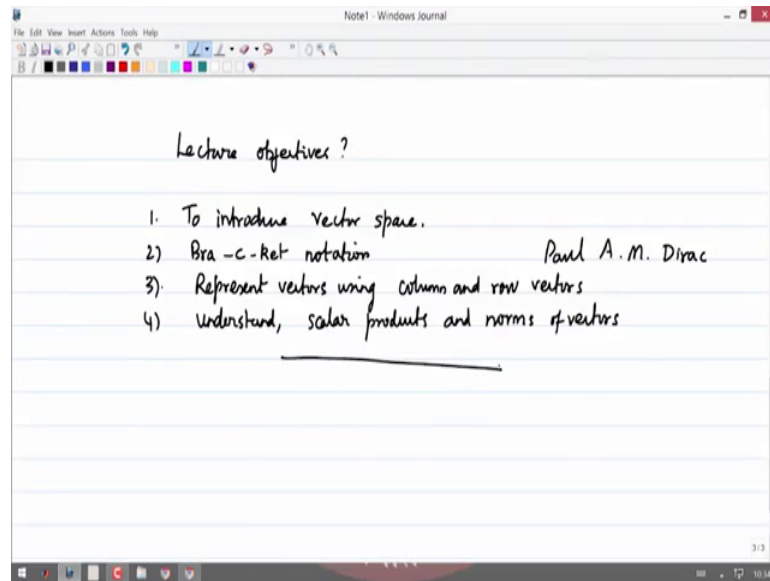 Note1 - Windows Journal
File Edit View Insert Actions Tools Help
B I
Lecture objectives?
1. To introduce vector space.
2) Bra-c-ket notation Paul A.M. Dirac
3). Represent vectors using column and row vectors
4) understand, scalar products and norms of vectors
3/3